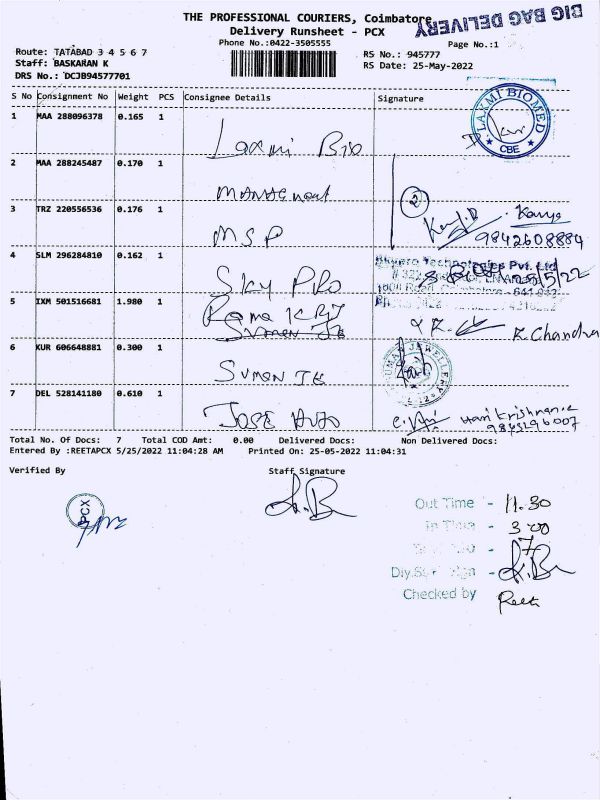 THE PROFESSIONAL COURIERS, Coimbatore
BIG BAG DELIVERY
Delivery Runsheet - PCX
Phone No.:0422-3505555
Page No.:1
Route: TATABAD 3 4 5 6 7
Staff: BASKARAN K
DRS No.: DCJB94577701
RS No.: 945777
RS Date: 25-May-2022
S No Consignment No Weight PCS Consignee Details Signature
1 MAA 288096378 0.165 1
Laxmi Bio
LAXMI BIOMED CBE
2 MAA 288245487 0.170 1
2
3 TRZ 220556536 0.176 1
MSP
Kavya
9842608884
4 SLM 296284810 0.162 1
SKY PRO
Technologies Pvt. Ltd
5 IXM 501516681 1.980 1
Rama KRJ
Sumon Je
R. Chandra
6 KUR 606648881 0.300 1
Sumon Je
JEWELLERY
7 DEL 528141180 0.610 1
JOSE
Hari krishnan.c
Total No. Of Docs: 7 Total COD Amt: 0.00 Delivered Docs: Non Delivered Docs:
Entered By :REETAPCX 5/25/2022 11:04:28 AM Printed On: 25-05-2022 11:04:31
Verified By Staff Signature
PCX
Out Time - 11.30
In Time - 3.00
7
Checked by Reeta